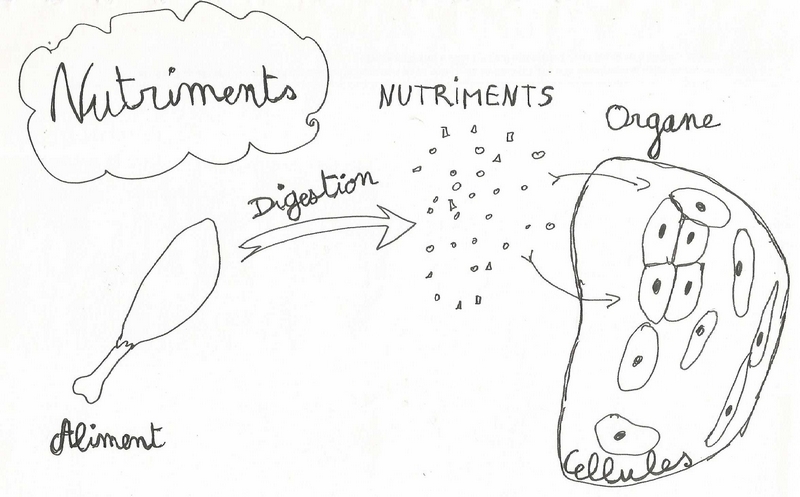 Nutriments
NUTRIMENTS
Organe
Digestion
Aliment
Cellules